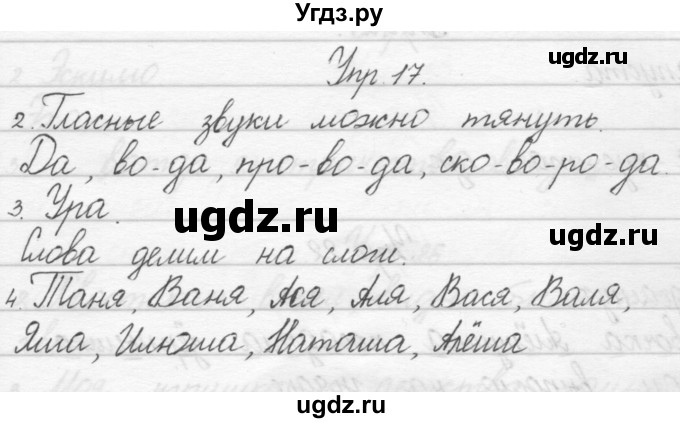 Угдз.ру
ugdz.ru
Упр. 17.
2. Гласные звуки можно тянуть.
Да, во-да, про-во-да, ско-во-ро-да.
3. Ура.
ugdz.ru
ugdz.ru
Слова делим на слоги.
4. Таня, Ваня, Ася, Аля, Вася, Валя,
Яша, Илюша, Наташа, Алёша
ugdz.ru